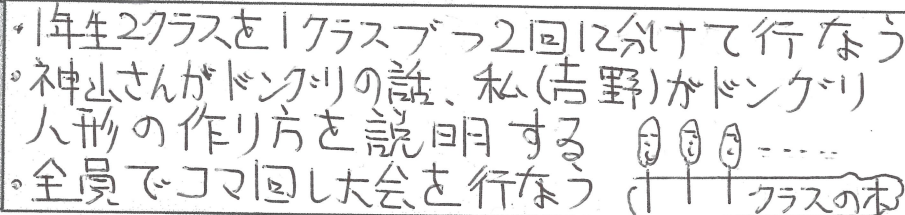 ・1年生2クラスを1クラスブつ2回に分けて行なう
・神山さんがドングリの話、私(吉野)がドングリ
人形の作り方を説明する
・全員でコマ回し大会を行なう
クラスの木